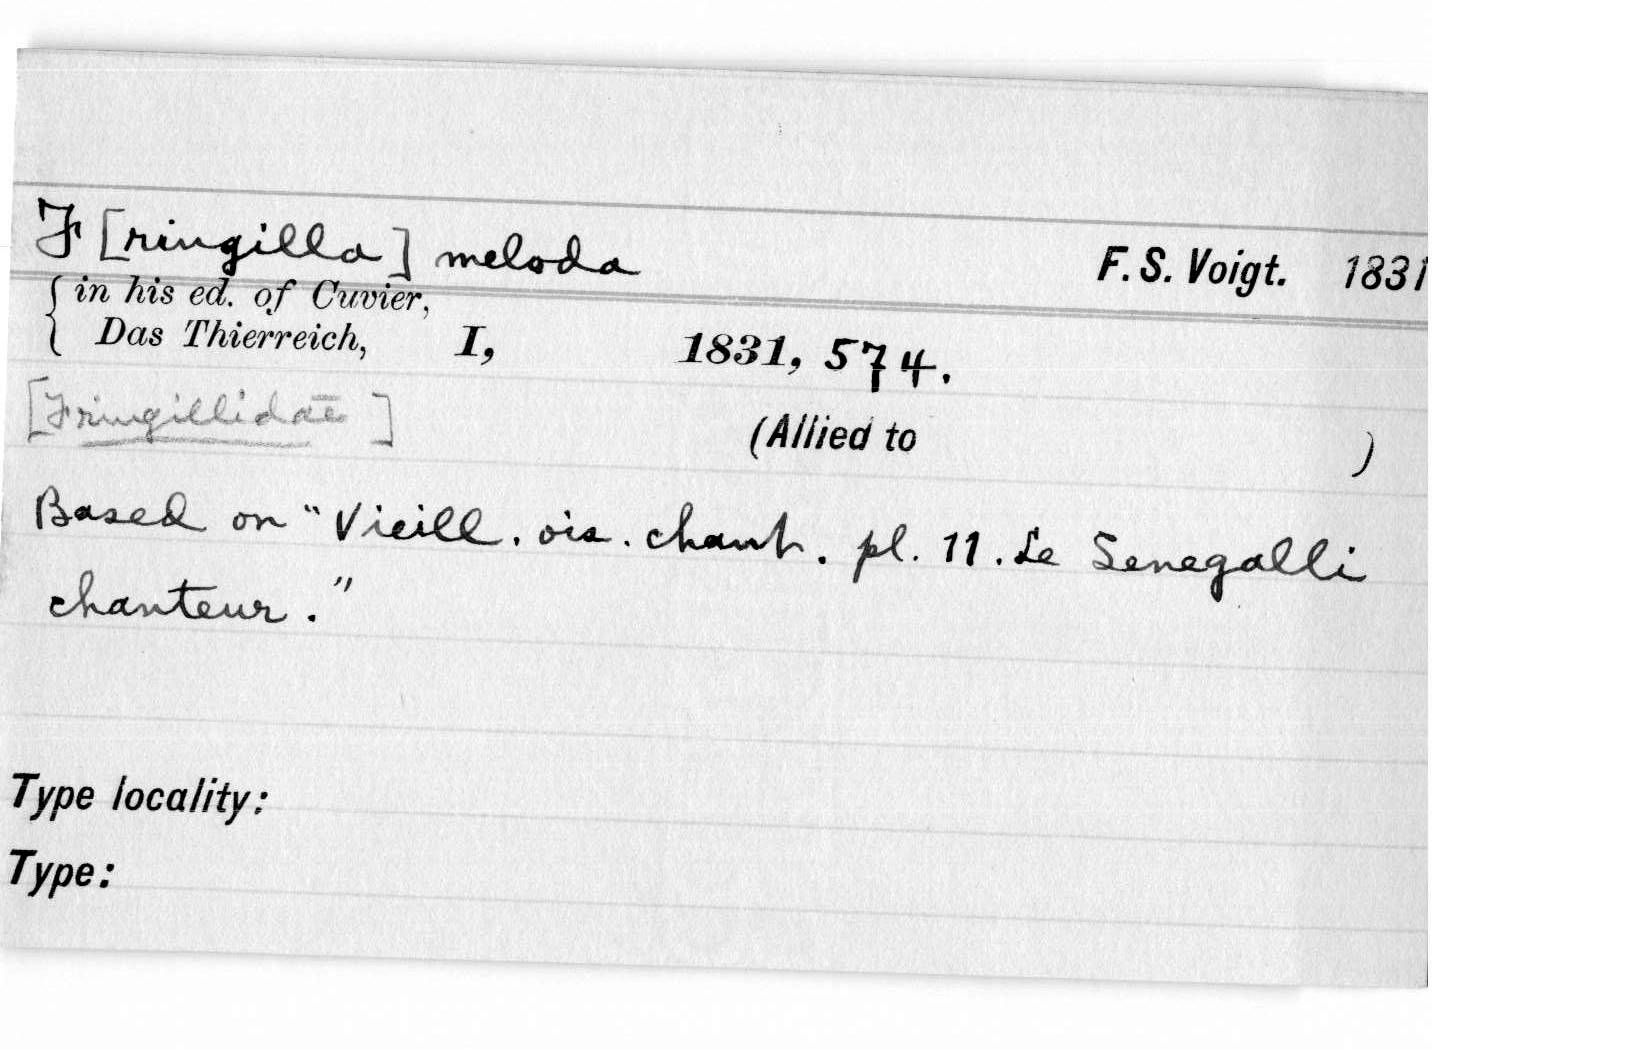 F[ringilla] meloda F. S. Voigt. 1831
in his ed. of Cuvier,
Das Thierreich, I, 1831, 574.
[Fringillidae]
(Allied to )
Based on "Vieill. ois. chant. pl. 11. Le Senegalli
chanteur."
Type locality:
Type: